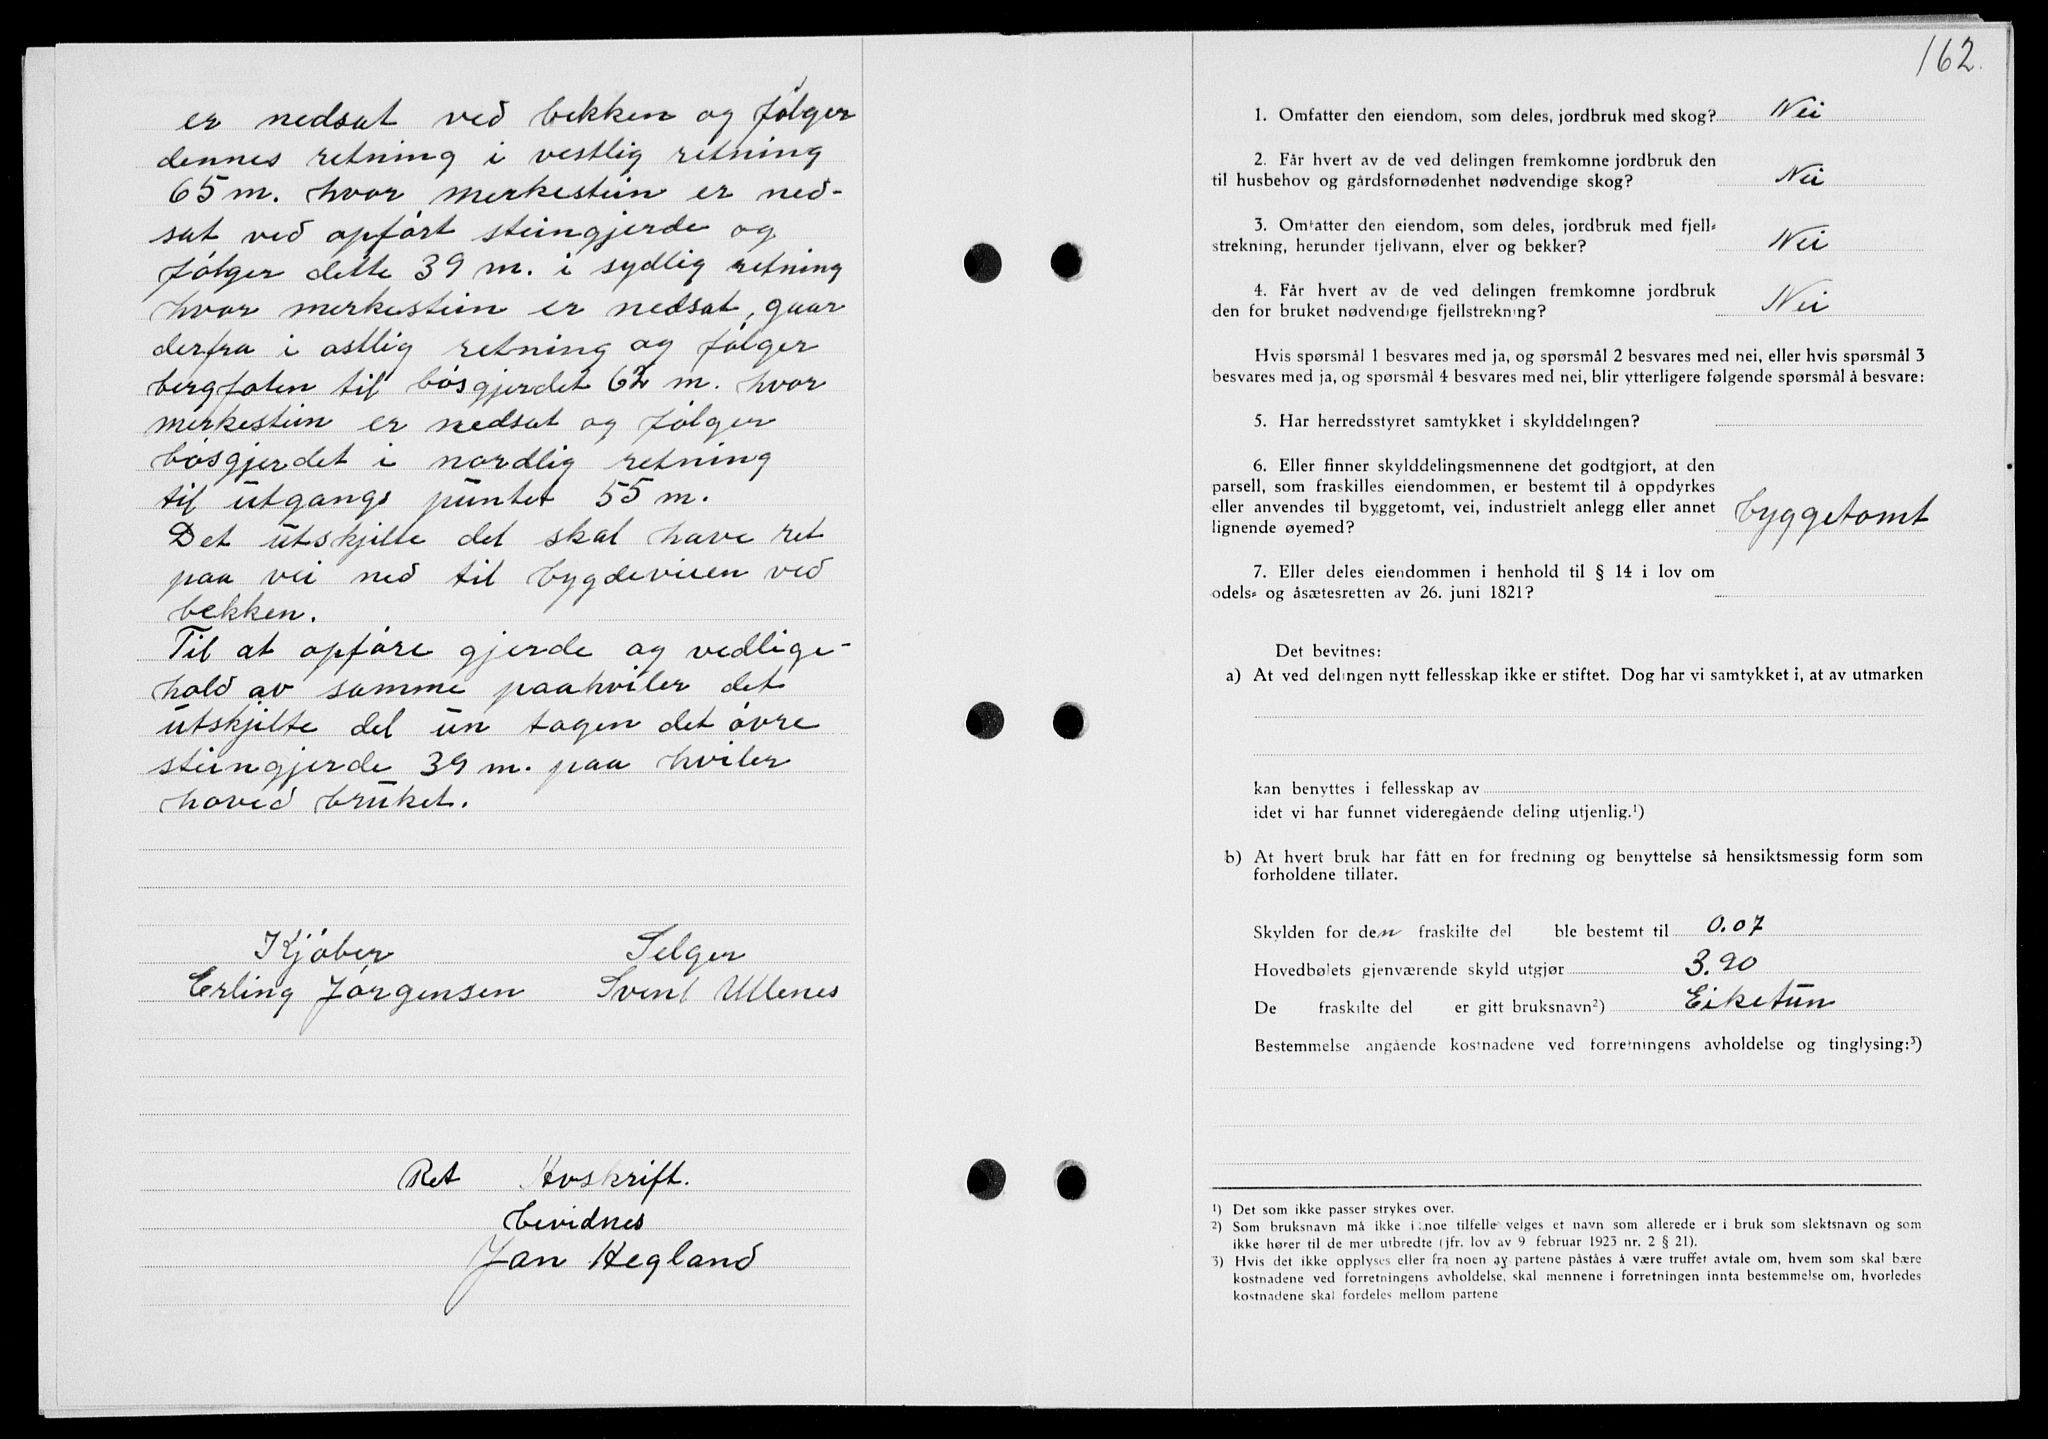 er nedsat ved bekken og følger
dennes retning i vestlig retning
65 m. hvor merkestein er ned-
sat ved opført steingjerde og
følger dette 39 m. i sydlig retning
hvor merkestein er nedsat, gaar
derfra i ostlig retning og følger
bergfoten til bøsgjerdet 62 m. hvor
merkestein er nedsat og følger
bøsgjerdet i nordlig retning
til utgangs punter 55 m.
Det utskjilte del skal have ret
paa vei ned til bygdeveien ved
bekken.
Til at opføre gjerde og vedlige-
hold av samme paahviler det
utskjilte del un tagen det øvre
steingjerde 39 m. paa hviler
hoved bruket.
Kjøber Selger
Erling Jørgensen Svent Ullenes
Ret Avskrift.
bevidnes
Jan Hegland
162.
1. Omfatter den eiendom, som deles, jordbruk med skog? Nei
2. Får hvert av de ved delingen fremkomne jordbruk den
til husbehov og gårdsfornødenhet nødvendige skog? Nei
3. Omfatter den eiendom, som deles, jordbruk med fjell-
strekning, herunder fjellvann, elver og bekker? Nei
4. Får hvert av de ved delingen fremkomne jordbruk
den for bruket nødvendige fjellstrekning? Nei
Hvis spørsmål 1 besvares med ja, og spørsmål 2 besvares med nei, eller hvis spørsmål 3
besvares med ja, og spørsmål 4 besvares med nei, blir ytterligere følgende spørsmål å besvare:
5. Har herredsstyret samtykket i skylddelingen?
6. Eller finner skylddelingsmennene det godtgjort, at den
parsell, som fraskilles eiendommen, er bestemt til å oppdyrkes
eller anvendes til byggetomt, vei, industrielt anlegg eller annet
lignende øyemed? byggetomt
7. Eller deles eiendommen i henhold til § 14 i lov om
odels- og åsætesretten av 26. juni 1821?
Det bevitnes:
a) At ved delingen nytt fellesskap ikke er stiftet. Dog har vi samtykket i, at av utmarken
kan benyttes i fellesskap av
idet vi har funnet videregående deling utjenlig.¹)
b) At hvert bruk har fått en for fredning og benyttelse så hensiktsmessig form som
forholdene tillater.
Skylden for den fraskilte del ble bestemt til 0.07
Hovedbølets gjenværende skyld utgjør 3.90
De fraskilte del er gitt bruksnavn²) Eiketun
Bestemmelse angående kostnadene ved forretningens avholdelse og tinglysing:³)
¹) Det som ikke passer strykes over.
²) Som bruksnavn må ikke i noe tilfelle velges et navn som allerede er i bruk som slektsnavn og som
ikke hører til de mer utbredte (jfr. lov av 9 februar 1923 nr. 2 § 21).
³) Hvis det ikke opplyses eller fra noen av partene påståes å være truffet avtale om, hvem som skal bære
kostnadene ved forretningens avholdelse, skal mennene i forretningen innta bestemmelse om, hvorledes
kostnadene skal fordeles mellom partene